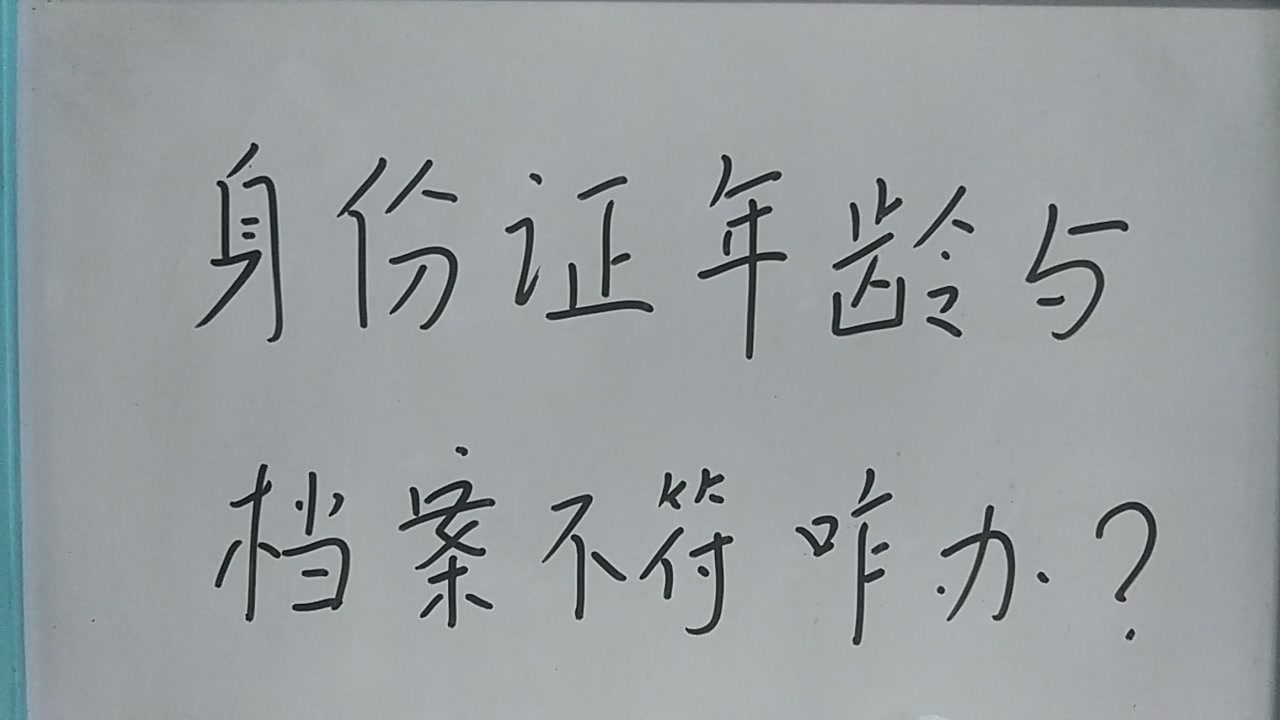 身份证年龄与
档案不符咋办?